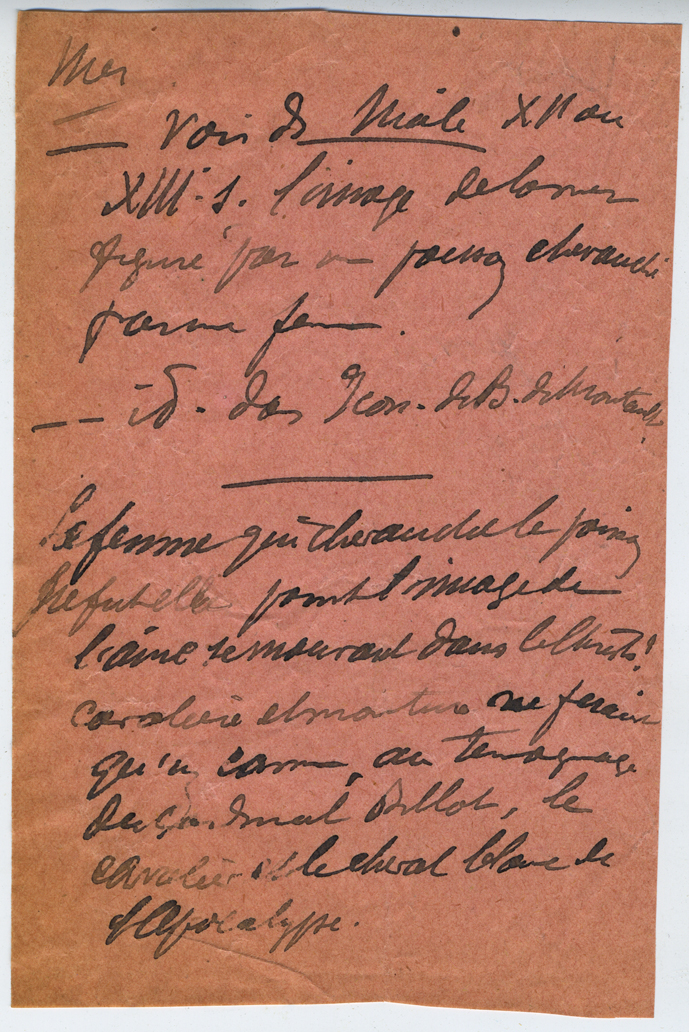 Mer
— Voir ds Mâle XII ou
XIII. s. l'image de la mer
figuré par un poisson chevauché
par une femme.
— — id. dans Icon. de B. de Montault
La femme qui chevauche le poisson
ne fut elle point l'image de
l'âme se mouvant dans le Christ?
cavalière et monture ne ferait
qu'un comme, au témoignage
du Cardinal Billot, le
cavalier et le cheval blanc de
l'Apocalypse.